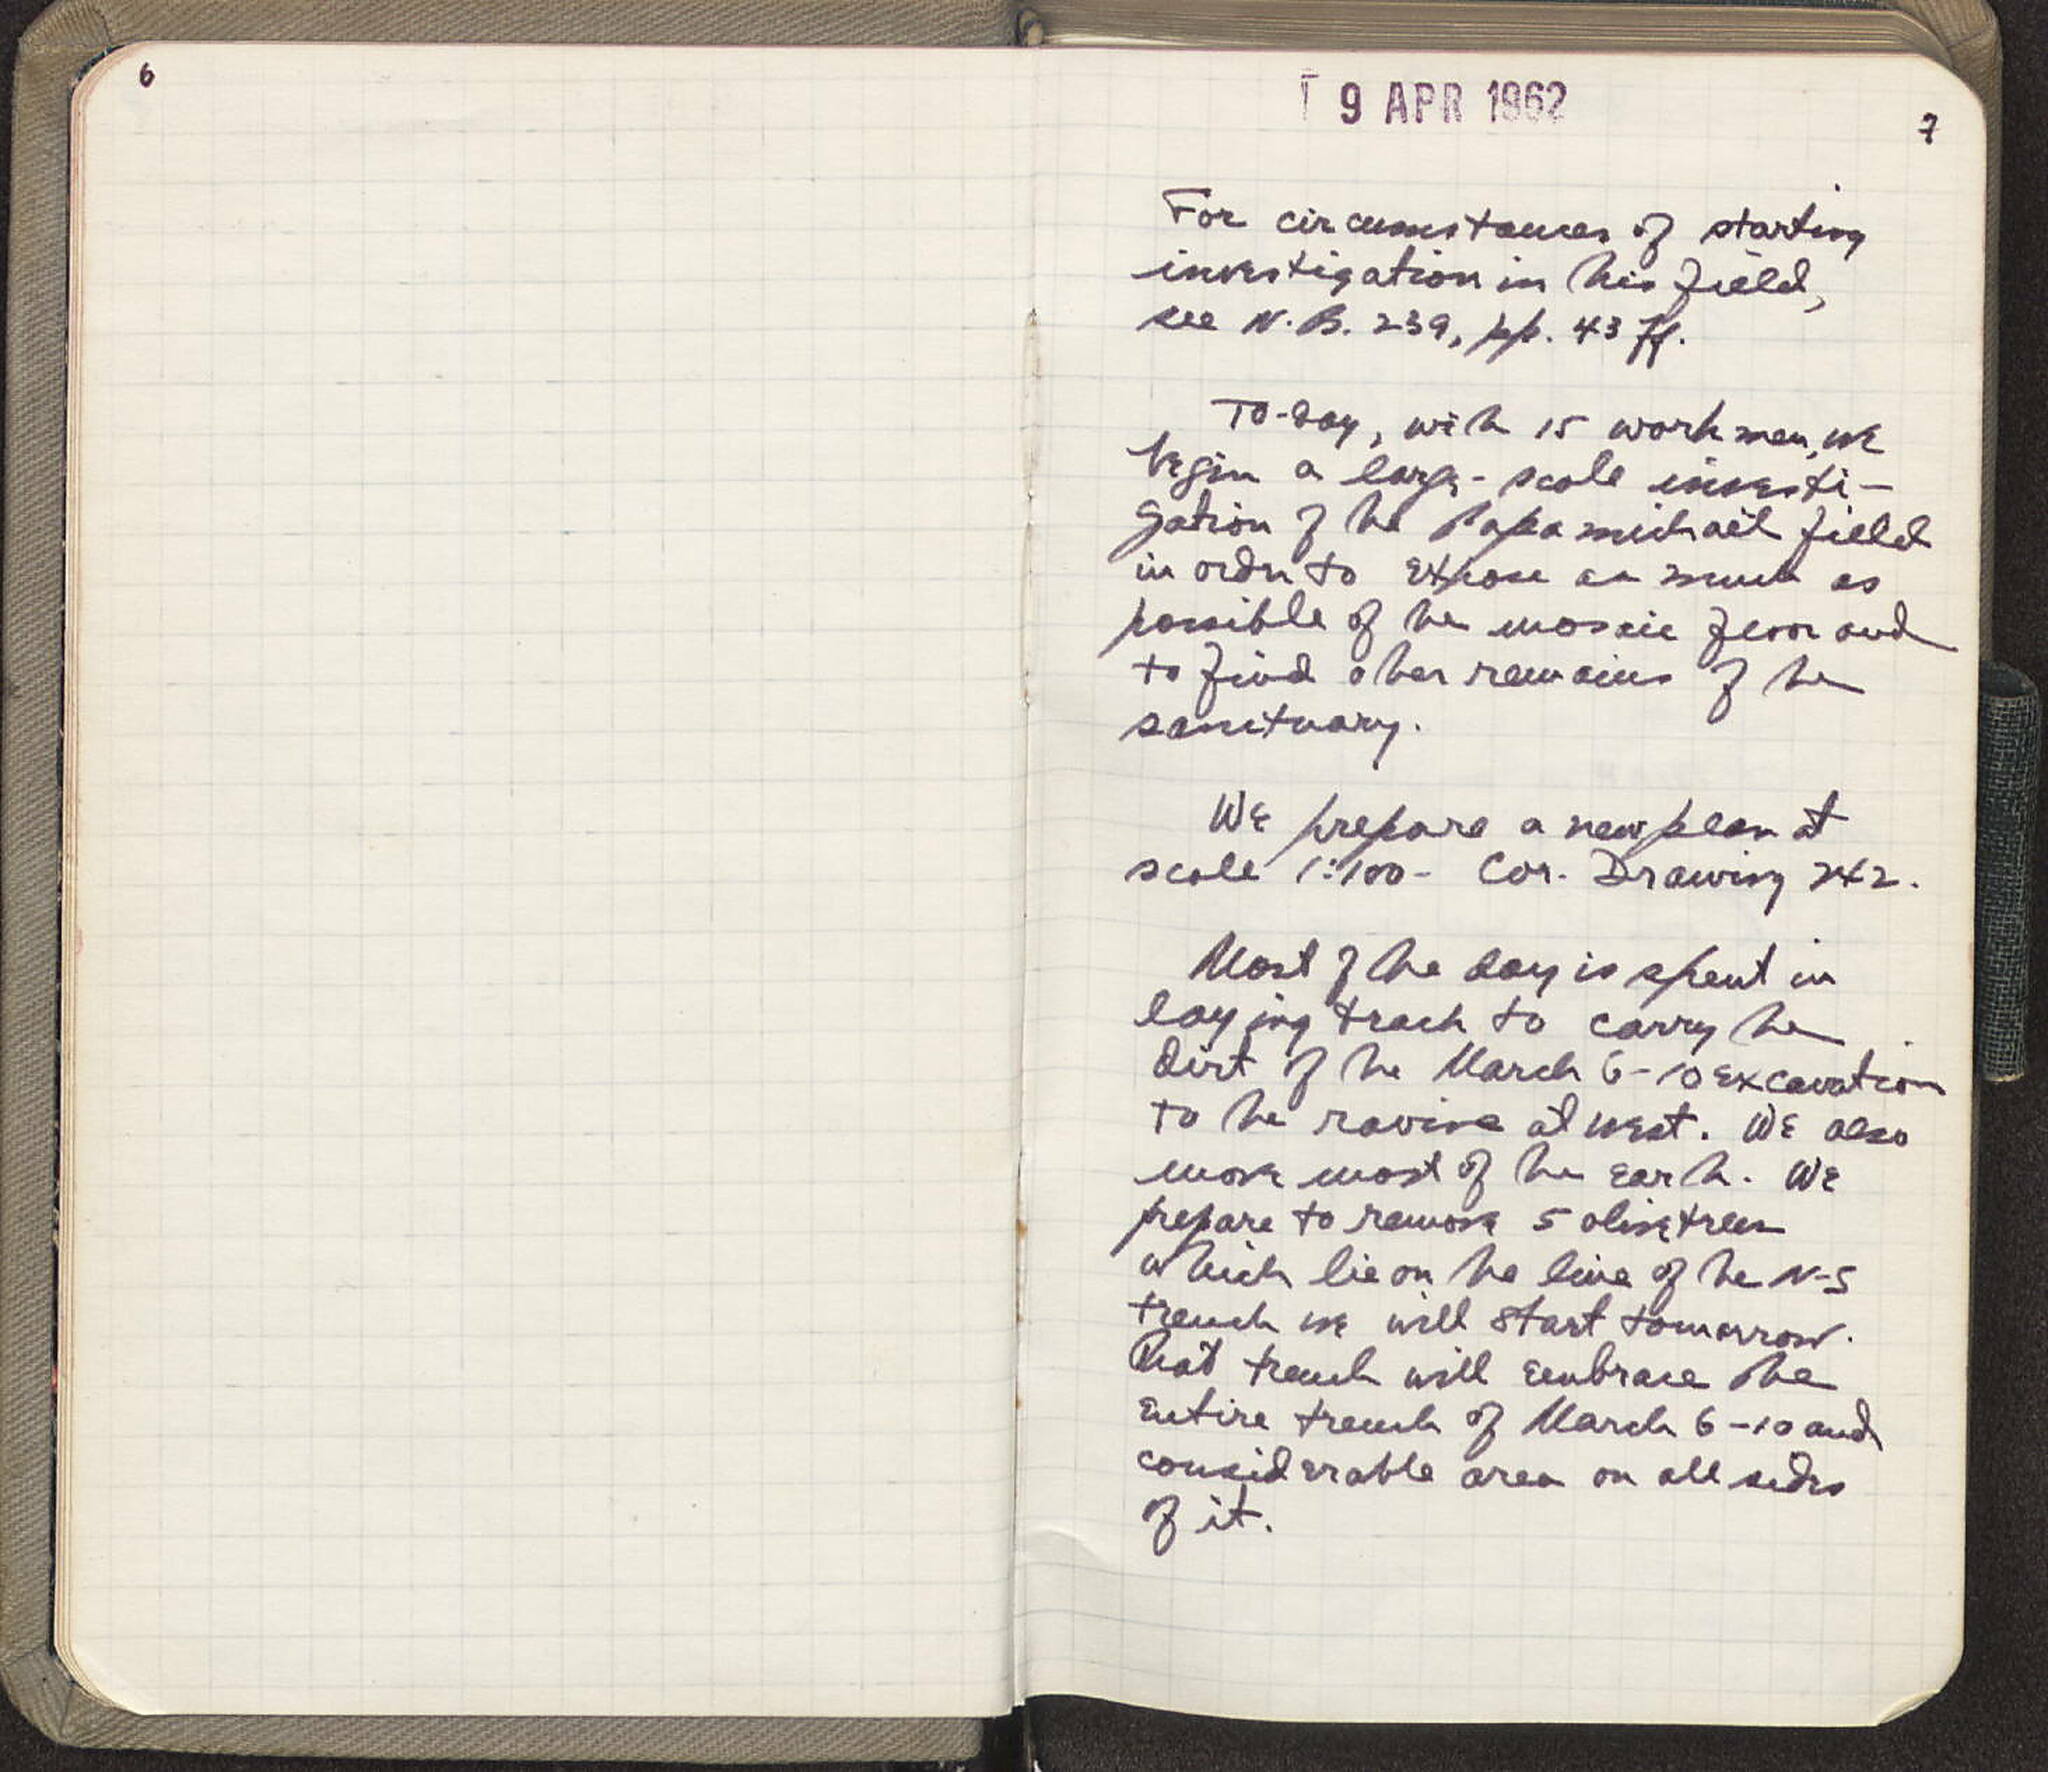 6
9 APR 1962
7
For circumstances of starting
investigation in this field,
see N.B. 239, pp. 43 ff.
To-day, with 15 workmen, we
begin a large-scale investi-
gation of the Papamichael field
in order to expose as much as
possible of the mosaic floor and
to find other remains of the
sanctuary.
We prepare a new plan at
scale 1:100 - Cor. Drawing 242.
Most of the day is spent in
laying track to carry the
dirt of the March 6-10 excavation
to the ravine at west. We also
move most of the earth. We
prepare to remove 5 olive trees
which lie on the line of the N-S
trench we will start tomorrow.
That trench will embrace the
entire trench of March 6-10 and
considerable area on all sides
of it.